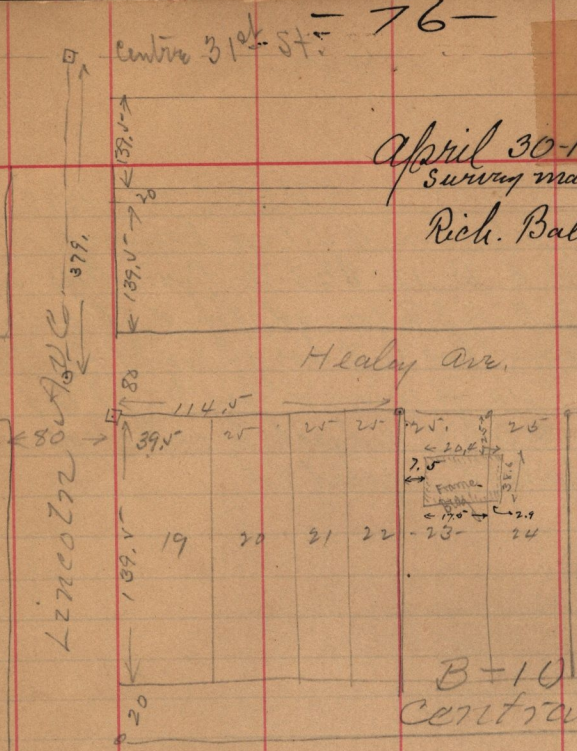 -76-
Centre 31st St.
April 30-1
Survey ma
Rich. Bal
139.5
20
139.5
379.
Lincoln Ave
Healy Ave.
80
114.5
80
39.5
25
25
25
25.
25
25
20.4
7.5
38.6
Frame
17.5
2.9
139.5
19
20
21
22
-23-
24
B-10
Centra
20